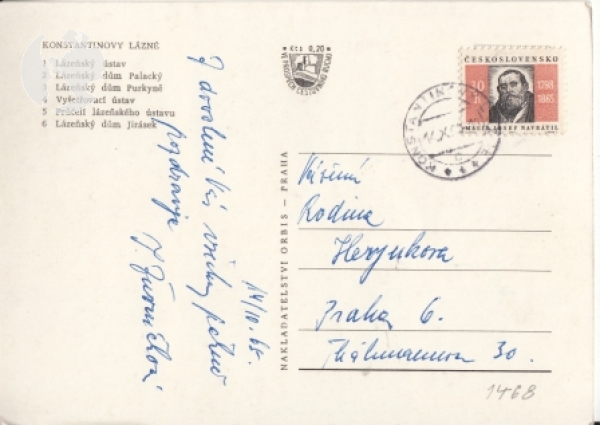 KONSTANTINOVY LÁZNĚ
1 Lázeňský ústav
2 Lázeňský dům Palacký
3 Lázeňský dům Purkyně
4 Vyšetřovací ústav
5 Průčelí lázeňského ústavu
6 Lázeňský dům Jirásek
Kčs 0,20
VE PROSPĚCH CESTOVNÍHO RUCHU
Z dovolené Vás všechny
pozdravuje
14/10. 65.
NAKLADATELSTVÍ ORBIS – PRAHA
ČESKOSLOVENSKO
30
1798
1865
MALÍŘ JOSEF NAVRÁTIL
KONSTANTIN
Vážená
Rodina
Praha 6.
30.
1468